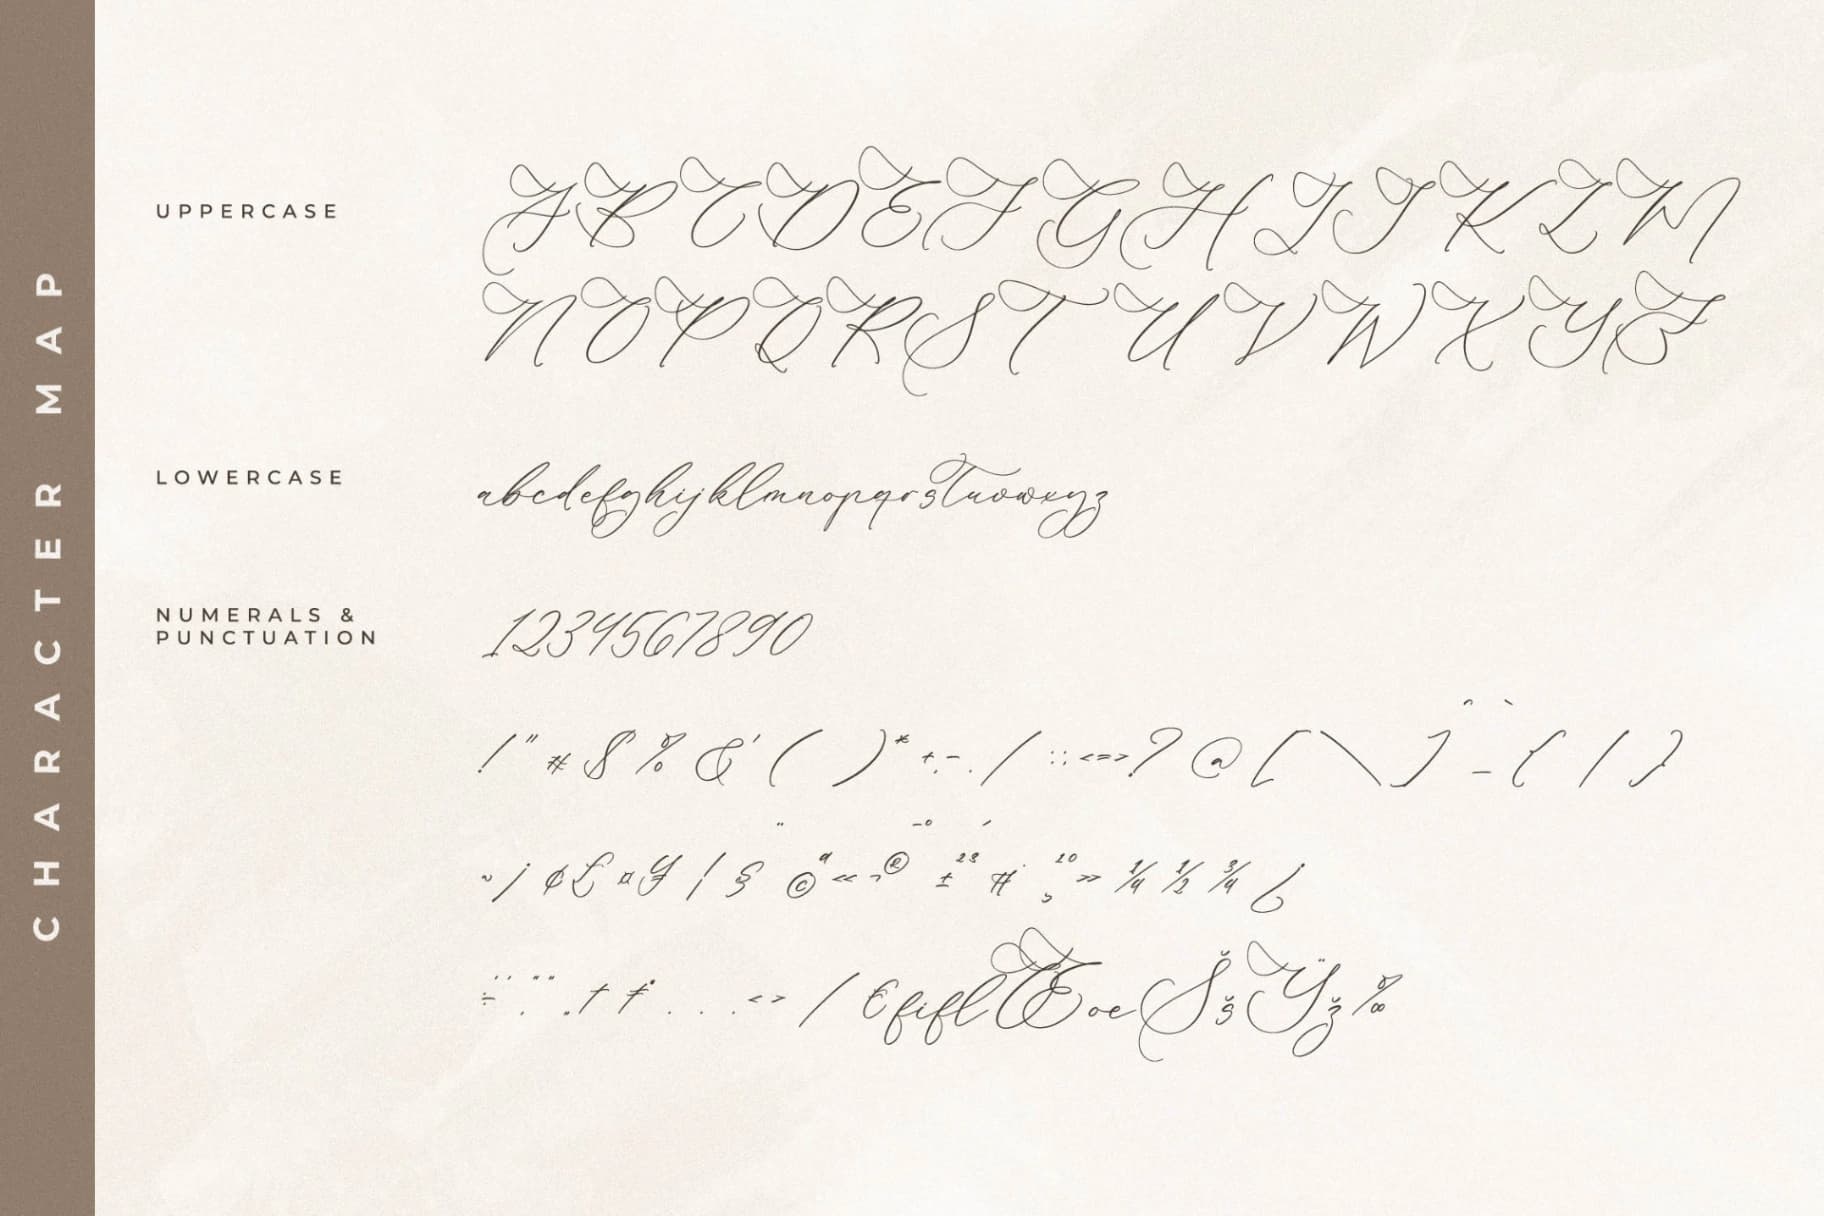 CHARACTER MAP
UPPERCASE
ABCDEFGHIJKLM
NOPQRSTUVWXYZ
LOWERCASE
abcdefghijklmnopqrstuvwxyz
NUMERALS &
PUNCTUATION
1234567890
!"#$%&'()*+,-./:;<=>?@[\]^_`{|}
~¡¢£¤¥¦§¨©ª«¬®¯°±²³´µ·¸¹º»¼½¾¿
÷‘’‚“”„†‡...‹›⁄€fiflŒœŠšŸž‰